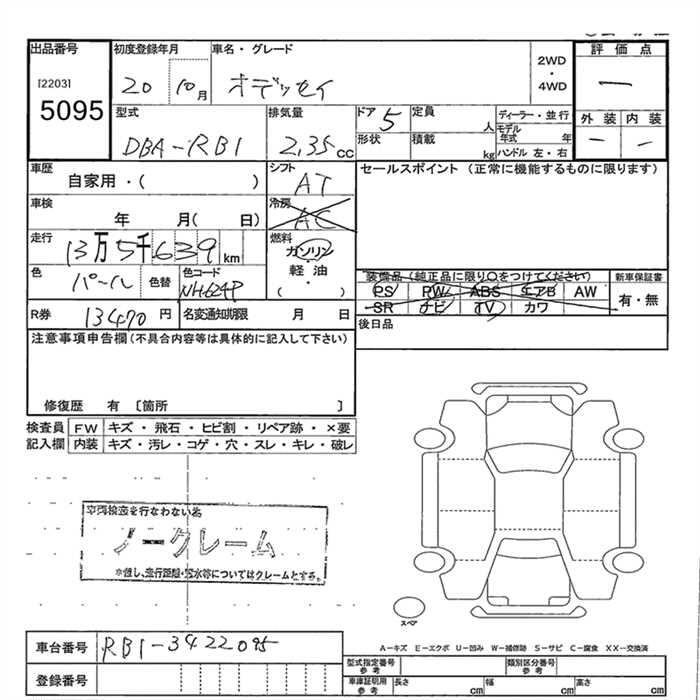 出品番号
[2203]
5095
初度登録年月
20 10月
車名・グレード
オデッセイ
2WD
・
4WD
評価点
ー
型式
DBA-RB1
排気量
2.35 CC
ドア 5
形状
定員
人
積載
kg
ディーラー・並行
モデル年式 年
ハンドル 左・右
外装 内装
ー ー
車歴
自家用・( )
シフト
AT
セールスポイント (正常に機能するものに限ります)
車検
年 月( 日)
冷房
AC
走行
13万5千639km
燃料
ガソリン
軽油
( ・ )
色
パール
色替
色コード
NH624P
装備品 (純正品に限り○をつけてください)
PS PW ABS エアB AW
SR ナビ TV カワ
新車保証書
有・無
R券
13470 円
名変通知期限 月 日
後日品
注意事項申告欄(不具合内容等は具体的に記入して下さい)
修復歴 有 〔箇所 〕
検査員 FW キズ・飛石・ヒビ割・リペア跡・×要
記入欄 内装 キズ・汚レ・コゲ・穴・スレ・キレ・破レ
車両検査を行なわない為
ノークレーム
※但し、走行距離・冠水等についてはクレームとする。
スペア
車台番号
RB1-3422095
A-キズ E-エクボ U-凹み W-補修跡 S-サビ C-腐食 XX-交換済
登録番号
型式指定番号
参考
類別区分番号
参考
車庫証明用
参考
長さ cm 幅 cm 高さ cm